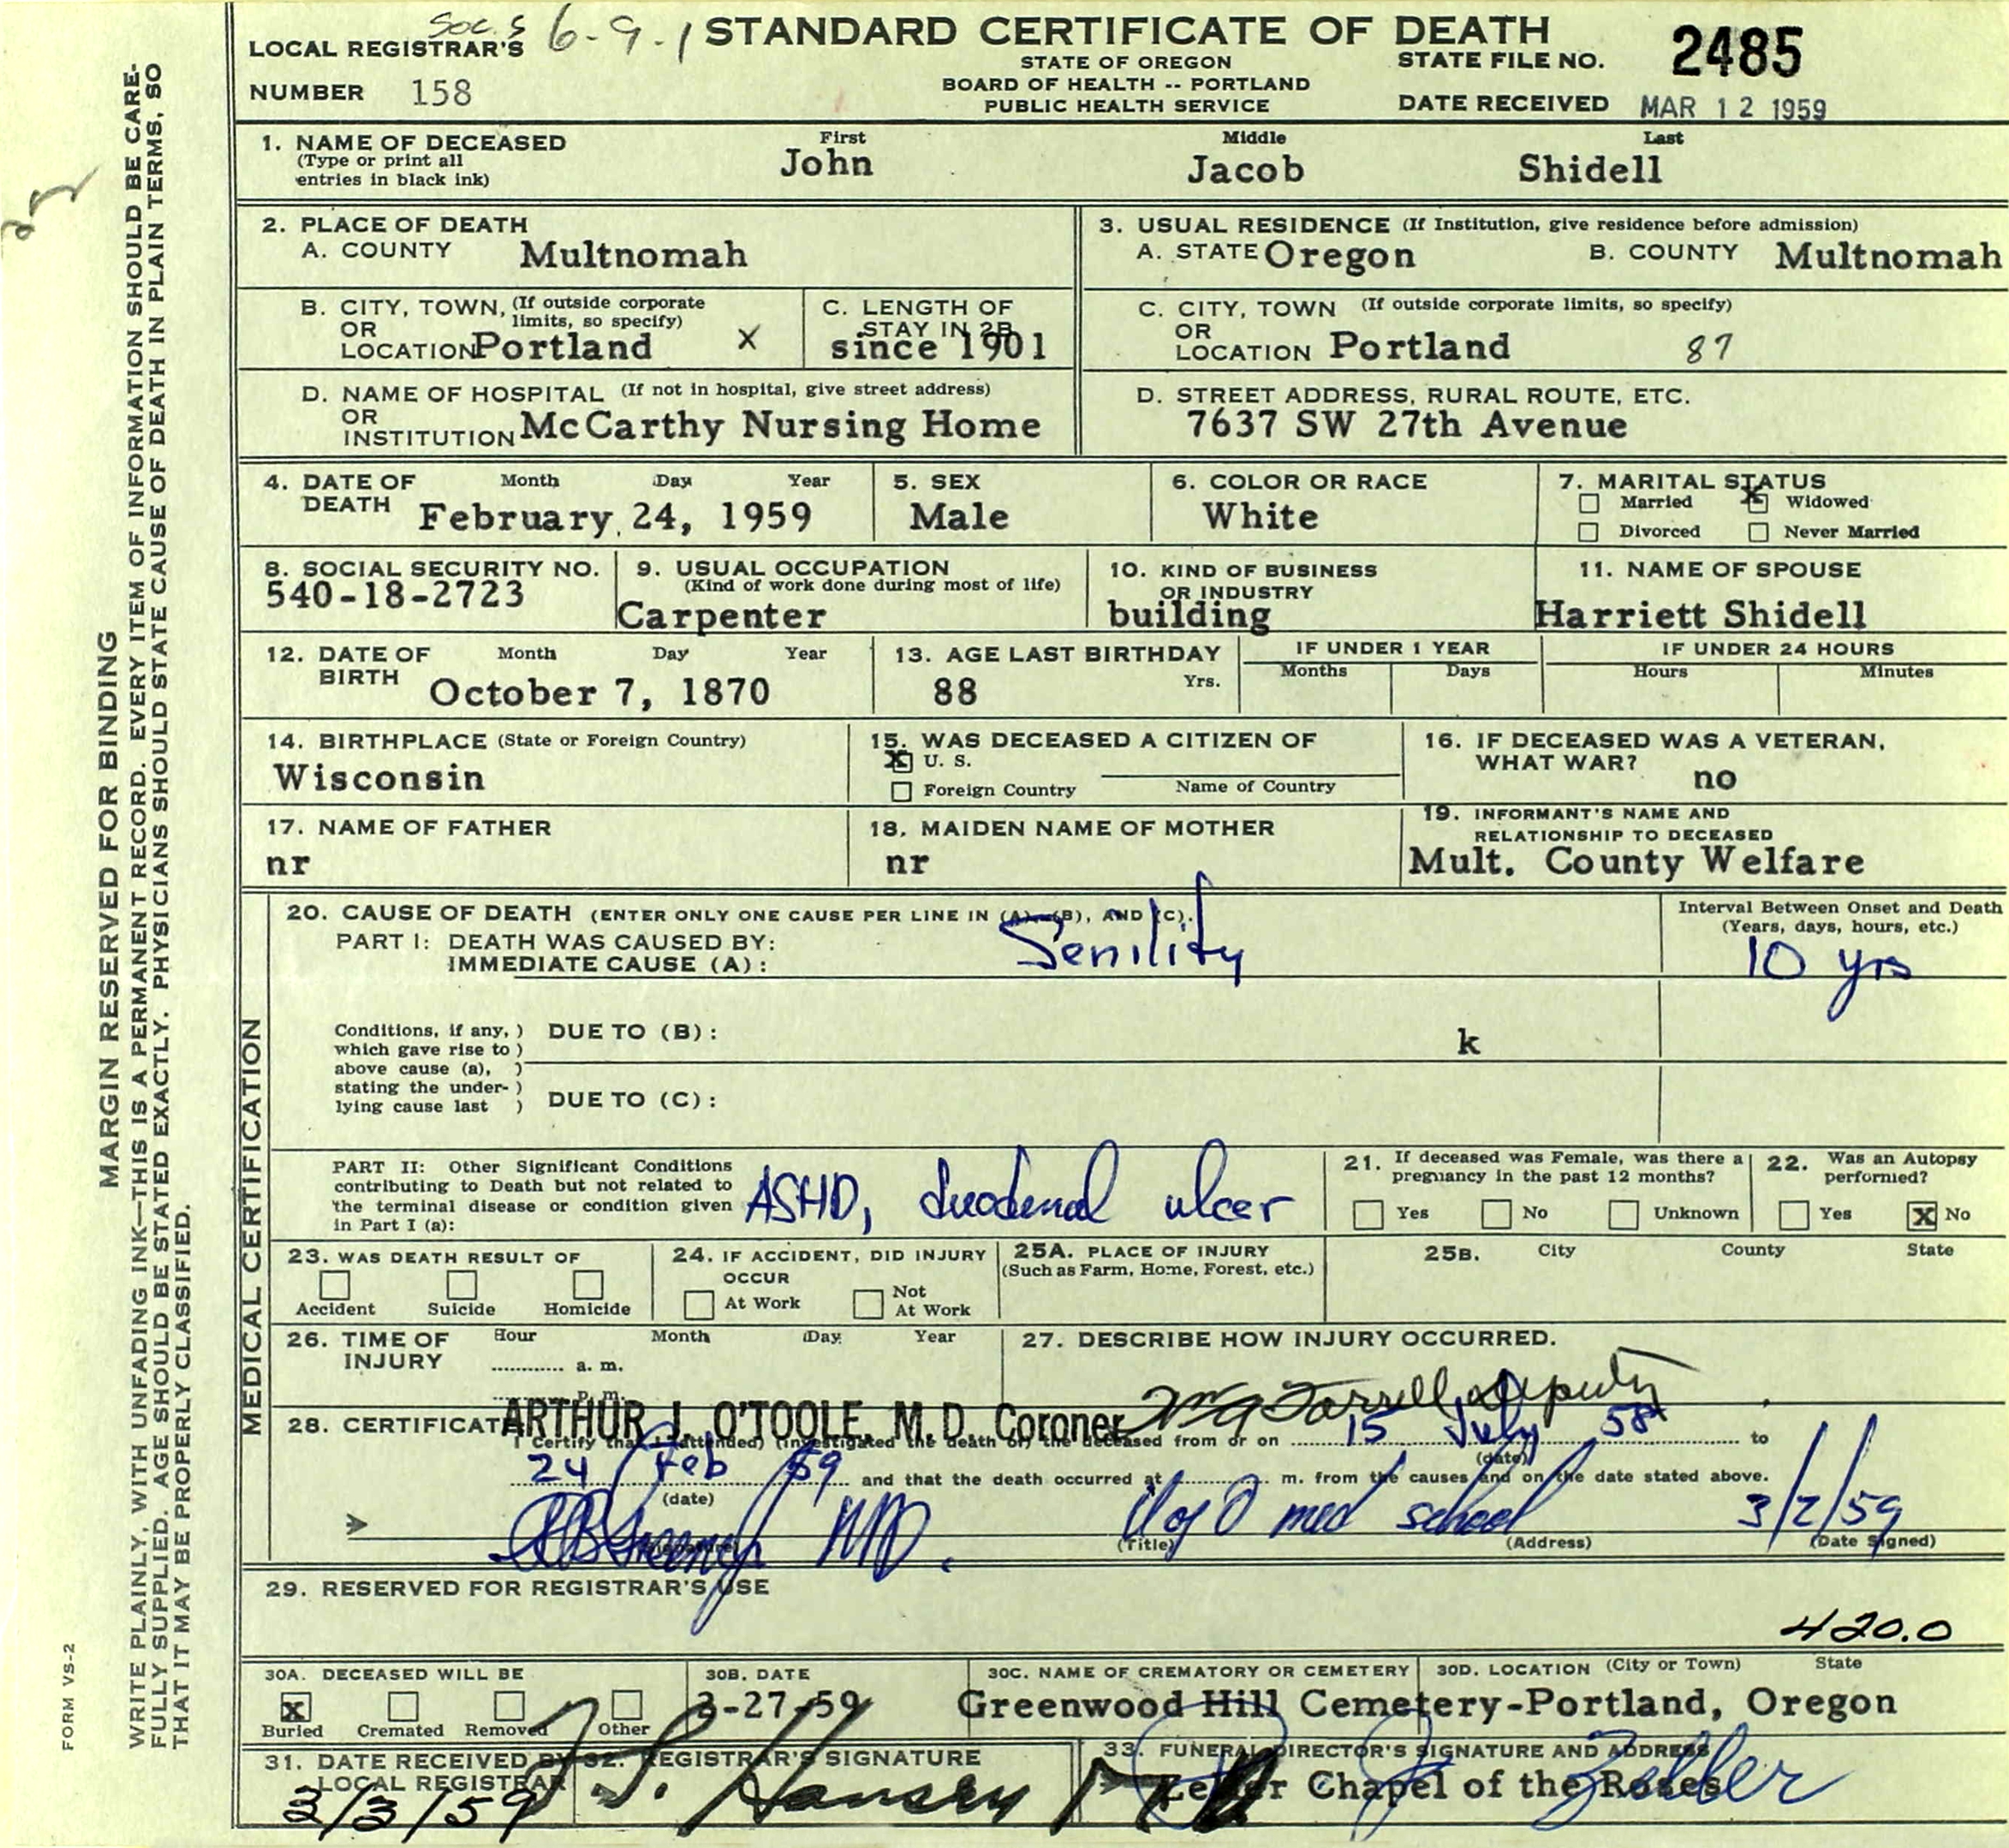 Soc. S 6-9-1
STANDARD CERTIFICATE OF DEATH
LOCAL REGISTRAR'S
NUMBER 158
STATE OF OREGON
BOARD OF HEALTH -- PORTLAND
PUBLIC HEALTH SERVICE
STATE FILE NO. 2485
DATE RECEIVED MAR 12 1959
1. NAME OF DECEASED
(Type or print all
entries in black ink)
First Middle Last
John Jacob Shidell
2. PLACE OF DEATH
A. COUNTY Multnomah
3. USUAL RESIDENCE (If Institution, give residence before admission)
A. STATE Oregon B. COUNTY Multnomah
B. CITY, TOWN, (If outside corporate
OR limits, so specify)
LOCATION Portland X
C. LENGTH OF
STAY IN 2B
since 1901
C. CITY, TOWN (If outside corporate limits, so specify)
OR
LOCATION Portland 87
D. NAME OF HOSPITAL (If not in hospital, give street address)
OR
INSTITUTION McCarthy Nursing Home
D. STREET ADDRESS, RURAL ROUTE, ETC.
7637 SW 27th Avenue
4. DATE OF Month Day Year
DEATH February 24, 1959
5. SEX
Male
6. COLOR OR RACE
White
7. MARITAL STATUS
Married X Widowed
Divorced Never Married
8. SOCIAL SECURITY NO.
540-18-2723
9. USUAL OCCUPATION
(Kind of work done during most of life)
Carpenter
10. KIND OF BUSINESS
OR INDUSTRY
building
11. NAME OF SPOUSE
Harriett Shidell
12. DATE OF Month Day Year
BIRTH October 7, 1870
13. AGE LAST BIRTHDAY
88 Yrs.
IF UNDER 1 YEAR
Months Days
IF UNDER 24 HOURS
Hours Minutes
14. BIRTHPLACE (State or Foreign Country)
Wisconsin
15. WAS DECEASED A CITIZEN OF
X U. S.
Foreign Country Name of Country
16. IF DECEASED WAS A VETERAN,
WHAT WAR? no
17. NAME OF FATHER
nr
18. MAIDEN NAME OF MOTHER
nr
19. INFORMANT'S NAME AND
RELATIONSHIP TO DECEASED
Mult. County Welfare
MEDICAL CERTIFICATION
20. CAUSE OF DEATH (ENTER ONLY ONE CAUSE PER LINE IN (A), (B), AND (C).
PART I: DEATH WAS CAUSED BY:
IMMEDIATE CAUSE (A): Senility
Interval Between Onset and Death
(Years, days, hours, etc.)
10 yrs
Conditions, if any, )
which gave rise to )
above cause (a), )
stating the under- )
lying cause last )
DUE TO (B): k
DUE TO (C):
PART II: Other Significant Conditions
contributing to Death but not related to
the terminal disease or condition given
in Part I (a):
ASHD, duodenal ulcer
21. If deceased was Female, was there a
pregnancy in the past 12 months?
Yes No Unknown
22. Was an Autopsy
performed?
Yes X No
23. WAS DEATH RESULT OF
Accident Suicide Homicide
24. IF ACCIDENT, DID INJURY
OCCUR
At Work Not
At Work
25A. PLACE OF INJURY
(Such as Farm, Home, Forest, etc.)
25B. City County State
26. TIME OF Hour Month Day Year
INJURY a. m.
p. m.
27. DESCRIBE HOW INJURY OCCURRED.
ARTHUR J. O'TOOLE, M.D. Coroner Deputy
28. CERTIFICATE
I Certify that I (attended) (investigated the death of) the deceased from or on 15 July 58 to
(date)
24 Feb 59 and that the death occurred at m. from the causes and on the date stated above.
(date)
MD. U of O med school 3/2/59
(Signature) (Title) (Address) (Date Signed)
29. RESERVED FOR REGISTRAR'S USE
420.0
30A. DECEASED WILL BE
X Buried Cremated Removed Other
30B. DATE
2-27-59
30C. NAME OF CREMATORY OR CEMETERY 30D. LOCATION (City or Town) State
Greenwood Hill Cemetery-Portland, Oregon
31. DATE RECEIVED BY
LOCAL REGISTRAR
3/3/59
32. REGISTRAR'S SIGNATURE
33. FUNERAL DIRECTOR'S SIGNATURE AND ADDRESS
Zeller Chapel of the Roses
Zeller
MARGIN RESERVED FOR BINDING
WRITE PLAINLY, WITH UNFADING INK—THIS IS A PERMANENT RECORD. EVERY ITEM OF INFORMATION SHOULD BE CARE-
FULLY SUPPLIED. AGE SHOULD BE STATED EXACTLY. PHYSICIANS SHOULD STATE CAUSE OF DEATH IN PLAIN TERMS, SO
THAT IT MAY BE PROPERLY CLASSIFIED.
FORM VS-2